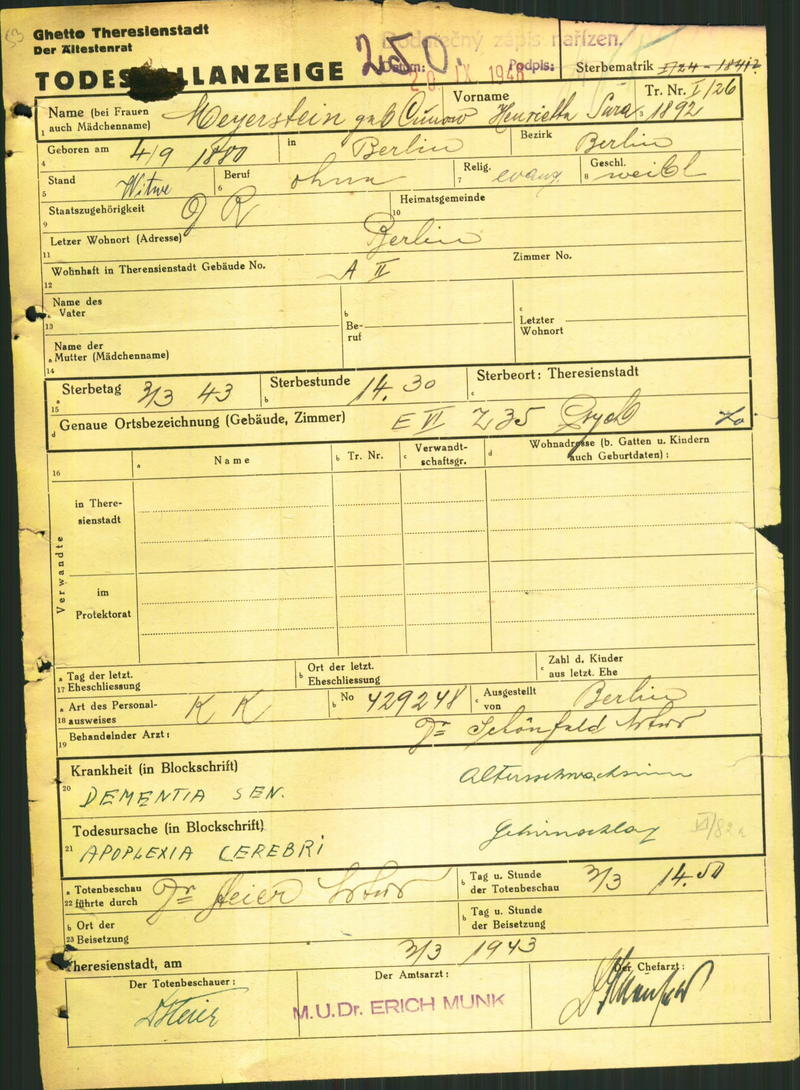 53
Ghetto Theresienstadt
Der Ältestenrat
250.
Dodatečný zápis nařízen.
Datum: 20. IX. 1948 Podpis:
TODESFALLANZEIGE
Sterbematrik I/24 - 1841?
Name (bei Frauen auch Mädchenname) Meyerstein geb Cunow
Vorname Henrietta Sara
Tr. Nr. I/26
1892
1
Geboren am 4/9 1880 in Berlin Bezirk Berlin
4
Stand Witwe Beruf ohne Relig. evang. Geschl. weibl
5 6 7 8
Staatszugehörigkeit D R Heimatsgemeinde
9 10
Letzer Wohnort (Adresse) Berlin
11
Wohnhaft in Therensienstadt Gebäude No. A II Zimmer No.
12
a Name des Vater b Beruf c Letzter Wohnort
13
a Name der Mutter (Mädchenname)
14
a Sterbetag 3/3 43 b Sterbestunde 14.30 c Sterbeort: Theresienstadt
15
d Genaue Ortsbezeichnung (Gebäude, Zimmer) E VI Z 35
16 a Name b Tr. Nr. c Verwandtschaftsgr. d Wohnadresse (b. Gatten u. Kindern auch Geburtdaten):
Verwandte
in Theresienstadt
im Protektorat
a Tag der letzt. Eheschliessung b Ort der letzt. Eheschliessung c Zahl d. Kinder aus letzt. Ehe
17
a Art des Personalausweises K K b No 429248 c Ausgestellt von Berlin
18
Behandelnder Arzt: Dr Schönfeld Artur
19
Krankheit (in Blockschrift) Altersschwachsinn
20 DEMENTIA SEN.
Todesursache (in Blockschrift) Gehirnschlag VI/82a
21 APOPLEXIA CEREBRI
a Totenbeschau führte durch Dr Steier Artur b Tag u. Stunde der Totenbeschau 3/3 14.50
22
b Ort der Beisetzung b Tag u. Stunde der Beisetzung
23
Theresienstadt, am 3/3 1943
Der Totenbeschauer: Der Amtsarzt: Der Chefarzt:
DSteier M.U.Dr. ERICH MUNK